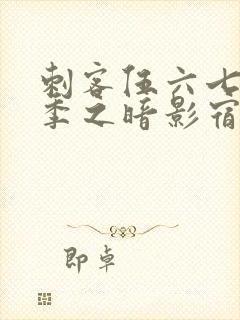 刺客伍六七
季之暗影宿
即卓